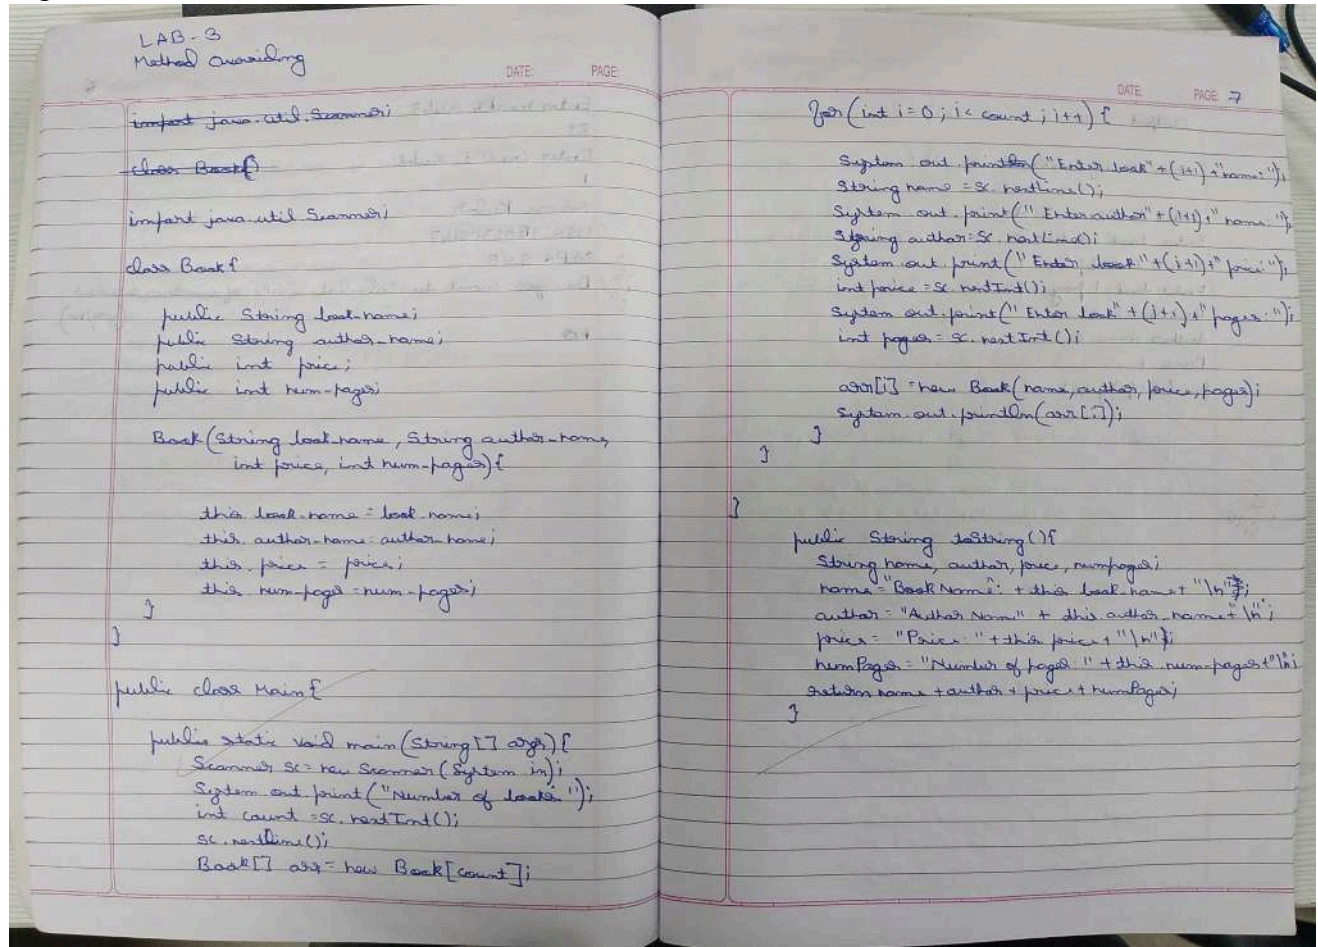 LAB-3
Method Overriding
DATE: PAGE:
import java.util.Scanner;
class Book{
import java.util.Scanner;
class Book{
public String book_name;
public String author_name;
public int price;
public int num_pages;
Book(String book_name, String author_name,
int price, int num_pages){
this.book_name = book_name;
this.author_name = author_name;
this.price = price;
this.num_pages = num_pages;
}
}
public class Main{
public static void main(String[] args){
Scanner sc = new Scanner(System.in);
System.out.print("Number of books: ");
int count = sc.nextInt();
sc.nextLine();
Book[] arr = new Book[count];
DATE PAGE: 7
for(int i=0; i< count; i++){
System.out.print("Enter book"+(i+1)+"name: ");
String name = sc.nextLine();
System.out.print("Enter author"+(i+1)+" name: ");
String author = sc.nextLine();
System.out.print("Enter book"+(i+1)+" price: ");
int price = sc.nextInt();
System.out.print("Enter book"+(i+1)+" pages: ");
int pages = sc.nextInt();
arr[i] = new Book(name, author, price, pages);
System.out.println(arr[i]);
}
}
}
public String toString(){
String name, author, price, numpages;
name = "Book Name: + this.book_name + "\n";
author = "Author Name" + this.author_name + "\n";
price = "Price: " + this.price + "\n";
numPages = "Number of pages: " + this.num_pages + "\n;
return name + author + price + numPages;
}